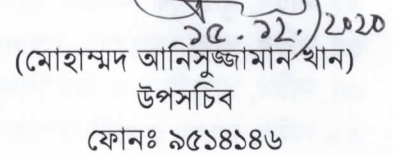 ১৫.১২.২০২০
(মোহাম্মদ আনিসুজ্জামান খান)
উপসচিব
ফোনঃ ৯৫১৪১৪৬